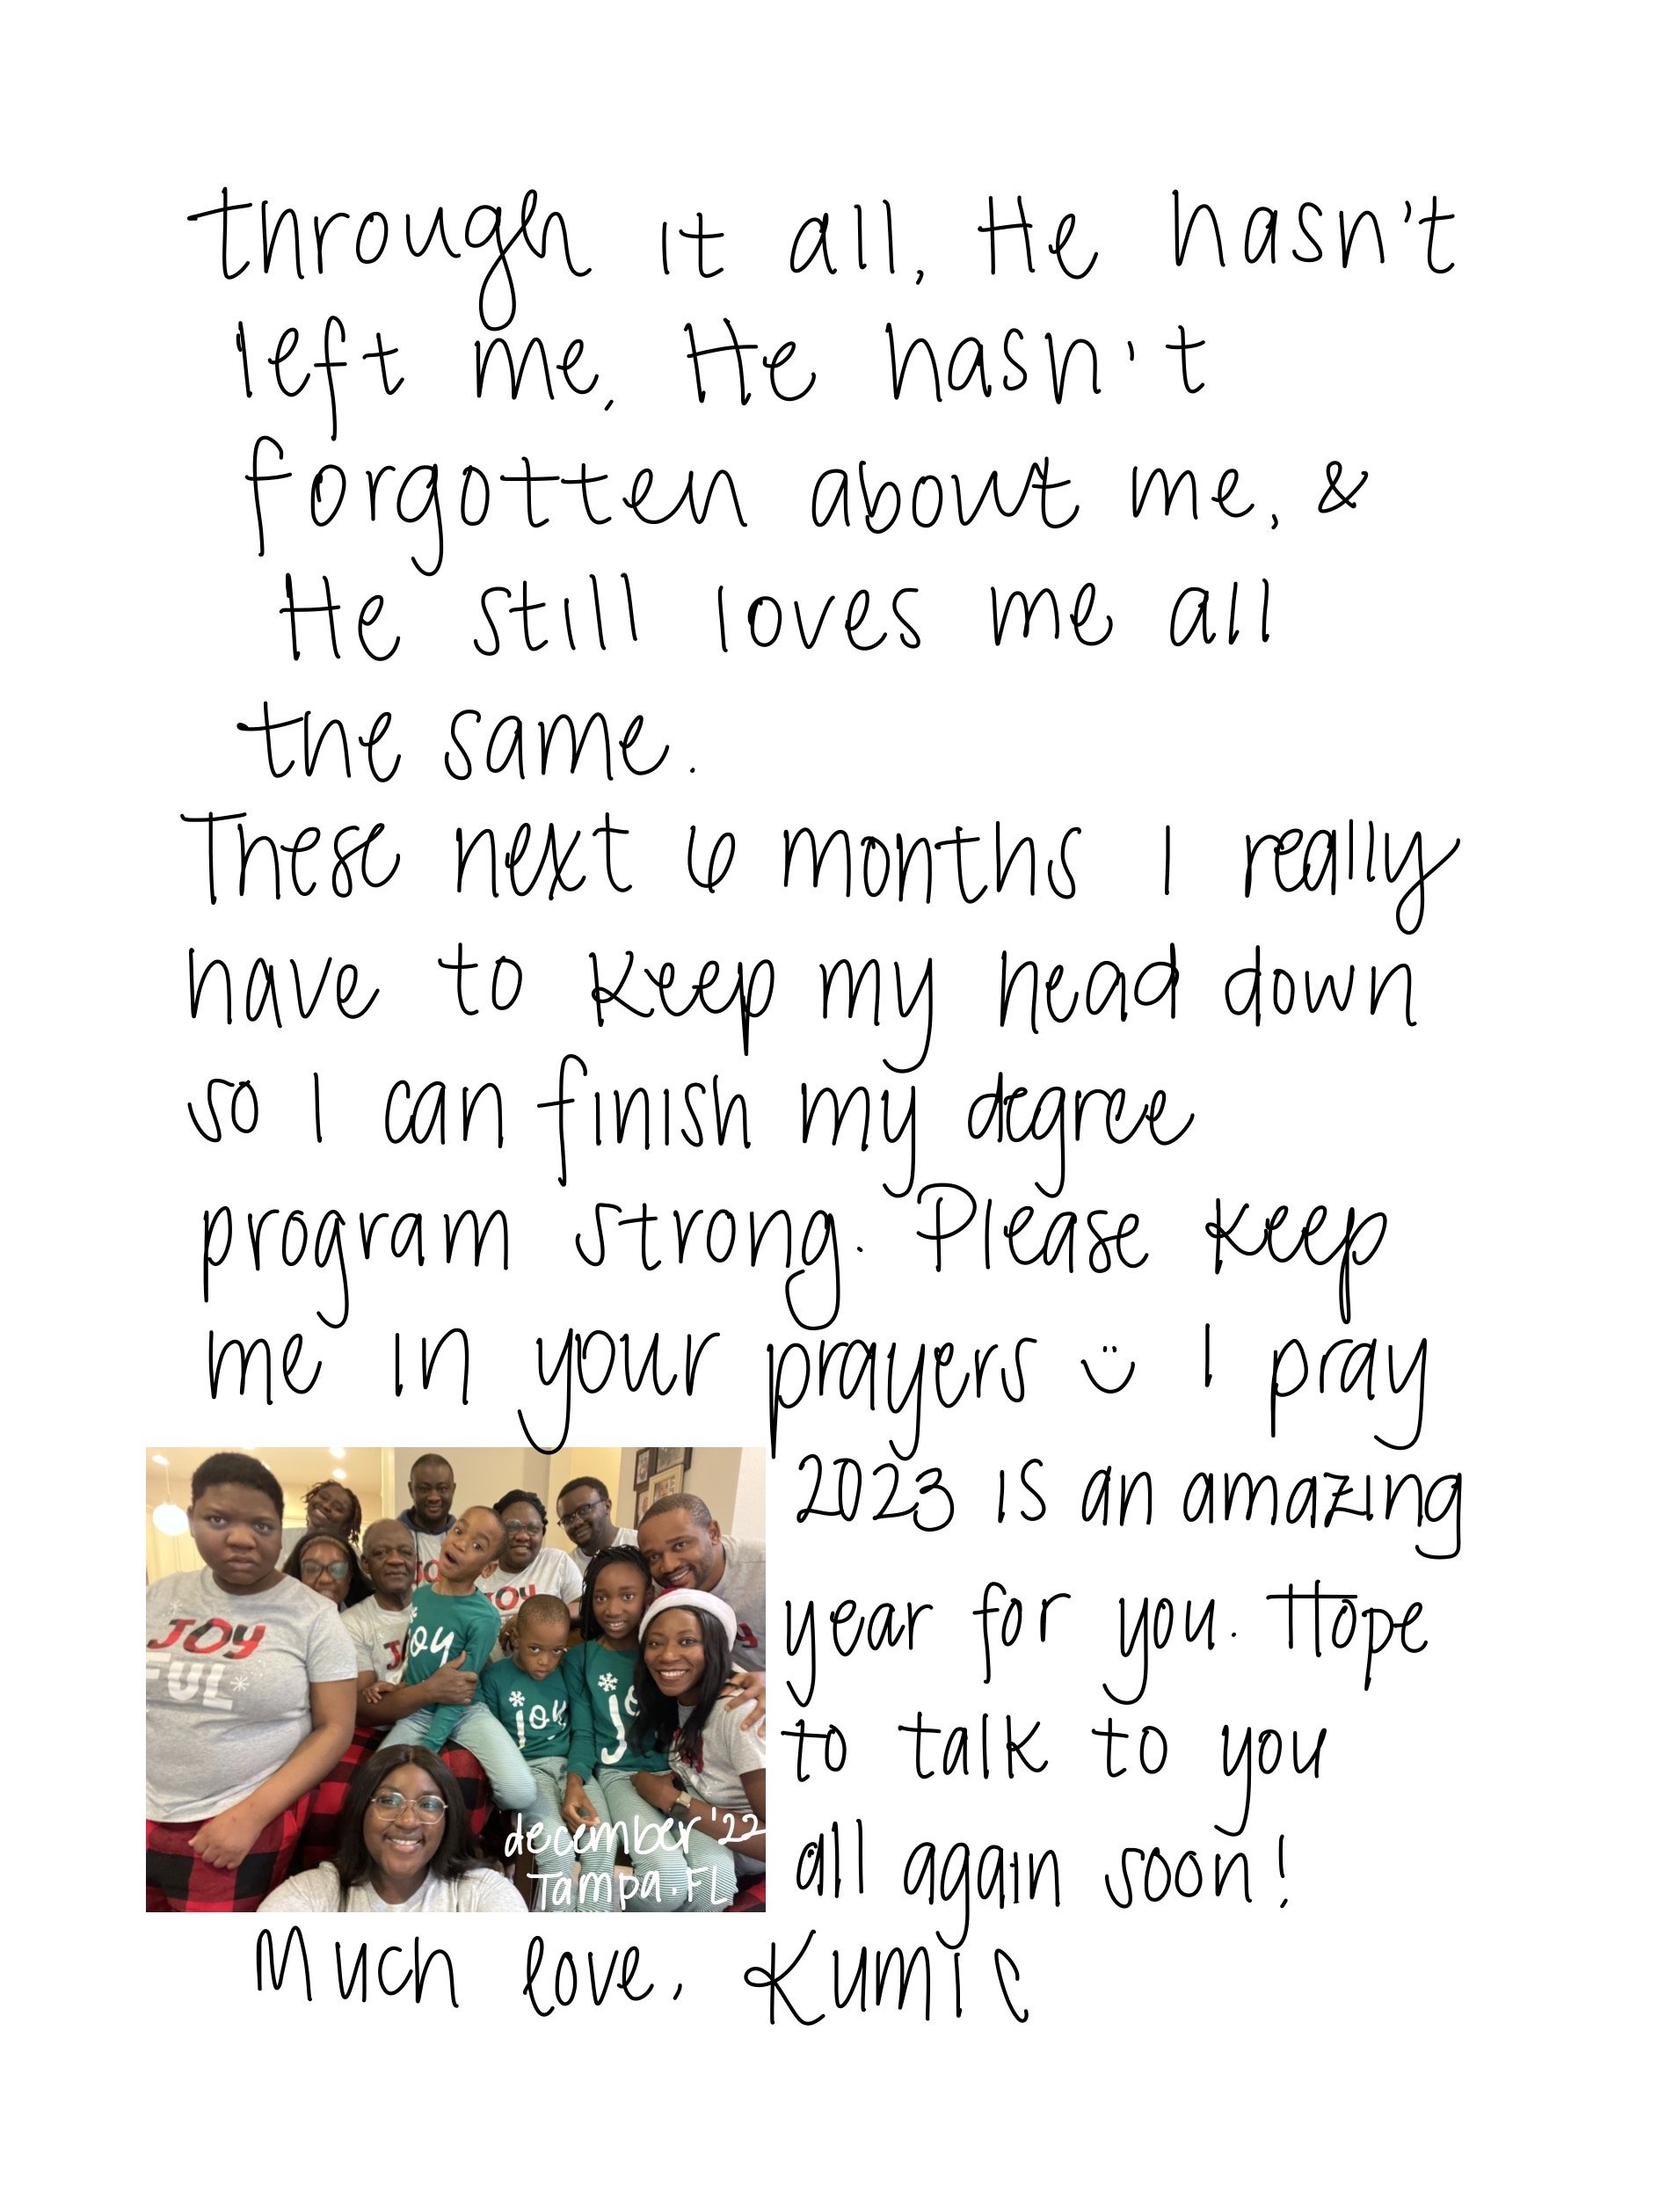 through it all, He hasn't
left me, He hasn't
forgotten about me, &
He still loves me all
the same.
These next 6 months I really
have to keep my head down
so I can finish my degree
program strong. Please keep
me in your prayers :) I pray
2023 is an amazing
year for you. Hope
to talk to you
all again soon!
Much love, Kumi C
JOY
FUL
JOY
joy
JOY
joy
december '22
Tampa, FL